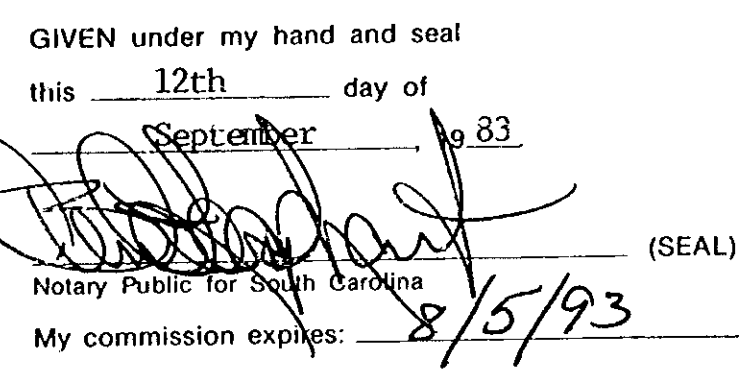 GIVEN under my hand and seal
this 12th day of
September, 1983
(SEAL)
Notary Public for South Carolina
My commission expires: 8/5/93